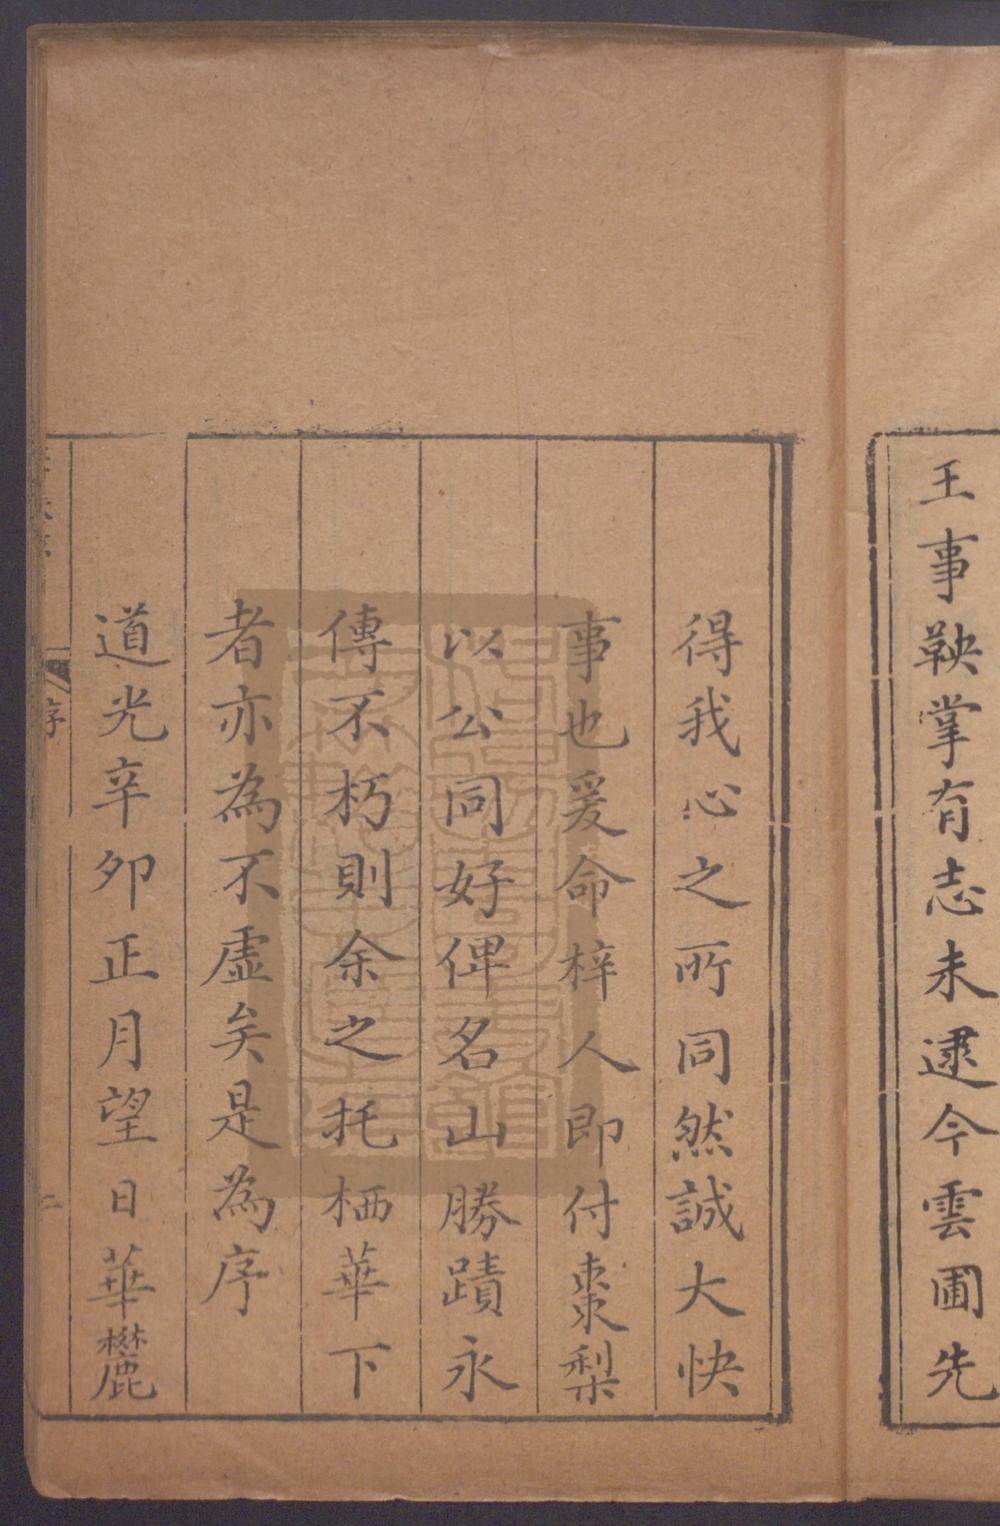 王事鞅掌有志未逮今雲圃先
得我心之所同然誠大快
事也爰命梓人即付棗梨
以公同好俾名山勝蹟永
傳不朽則余之托栖華下
者亦為不虛矣是為序
道光辛卯正月望日華麓
序
二